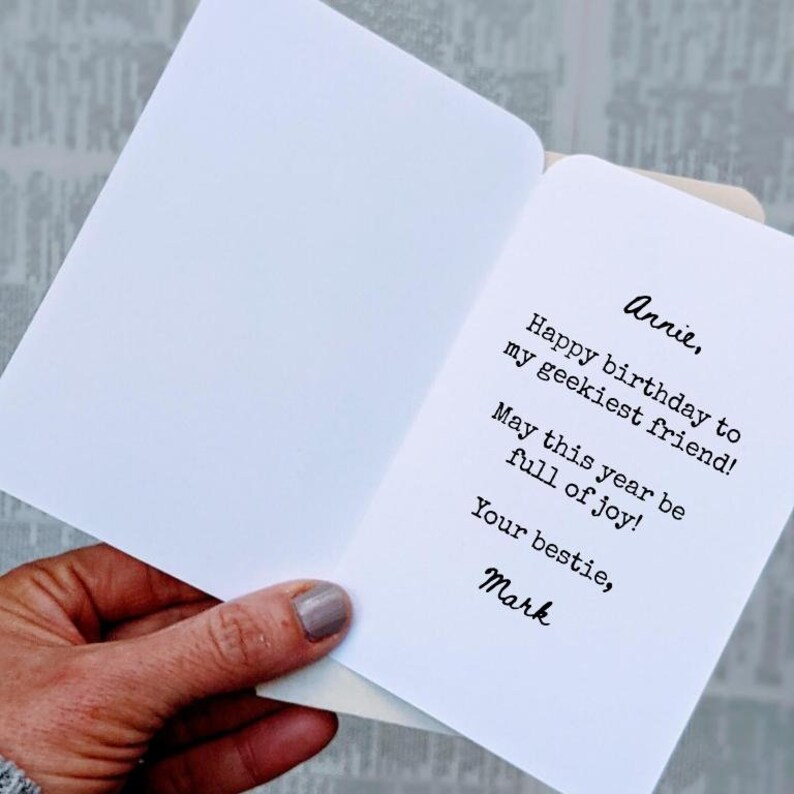 Annie,
Happy birthday to
my geekiest friend!
May this year be
full of joy!
Your bestie,
Mark